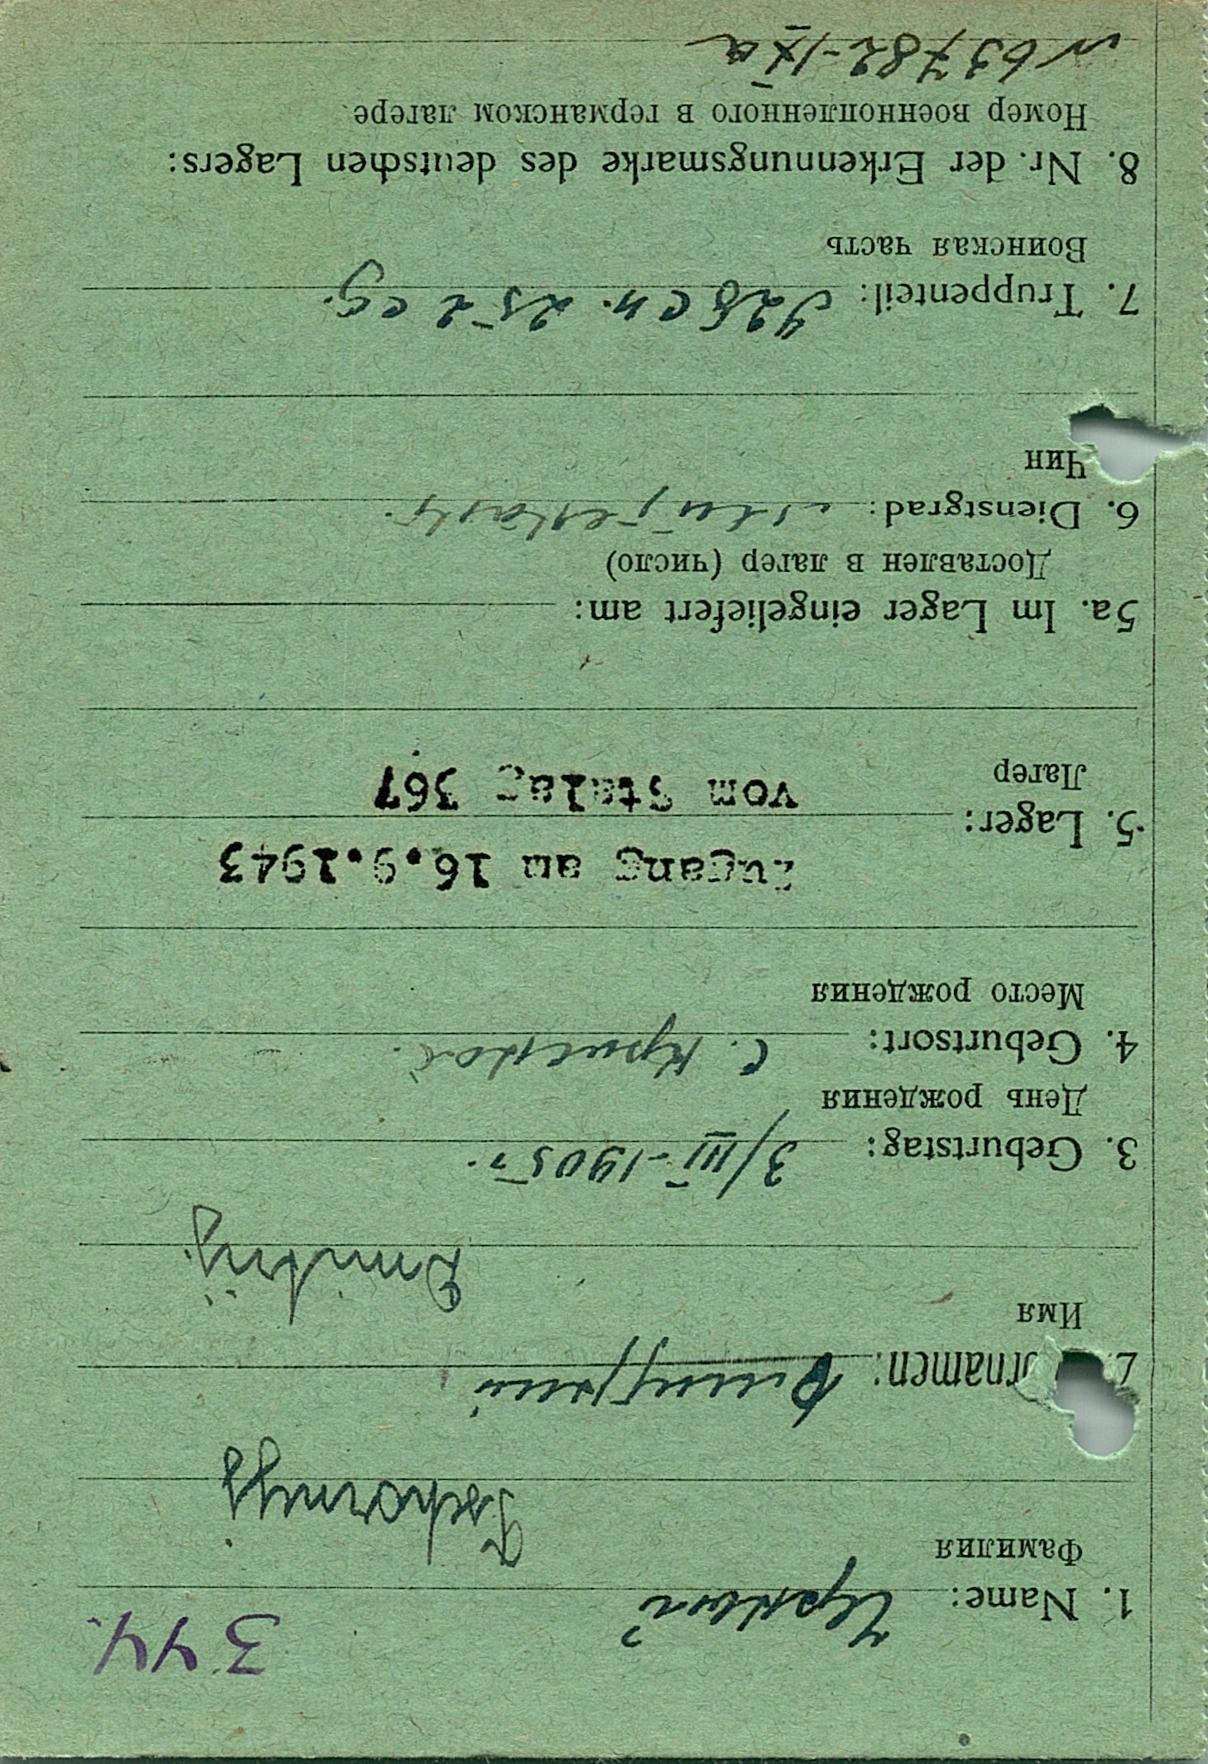 344.
1. Name: Чорный
Фамилия
Tschornyj
2. ornamen: Дмитрий
Имя
Dmitrij
3. Geburtstag: 3/III-1905г.
День рождения
4. Geburtsort: с.
Место рождения
Zugang am 16.9.1943
5. Lager: vom Stalag 367
Лагер
5a. Im Lager eingeliefert am:
Доставлен в лагер (число)
6. Dienstgrad:
Чин
7. Truppenteil: 928 сп. 252 сд.
Воинская часть
8. Nr. der Erkennungsmarke des deutschen Lagers:
Номер военнопленного в германском лагере
№ 63782-IXa